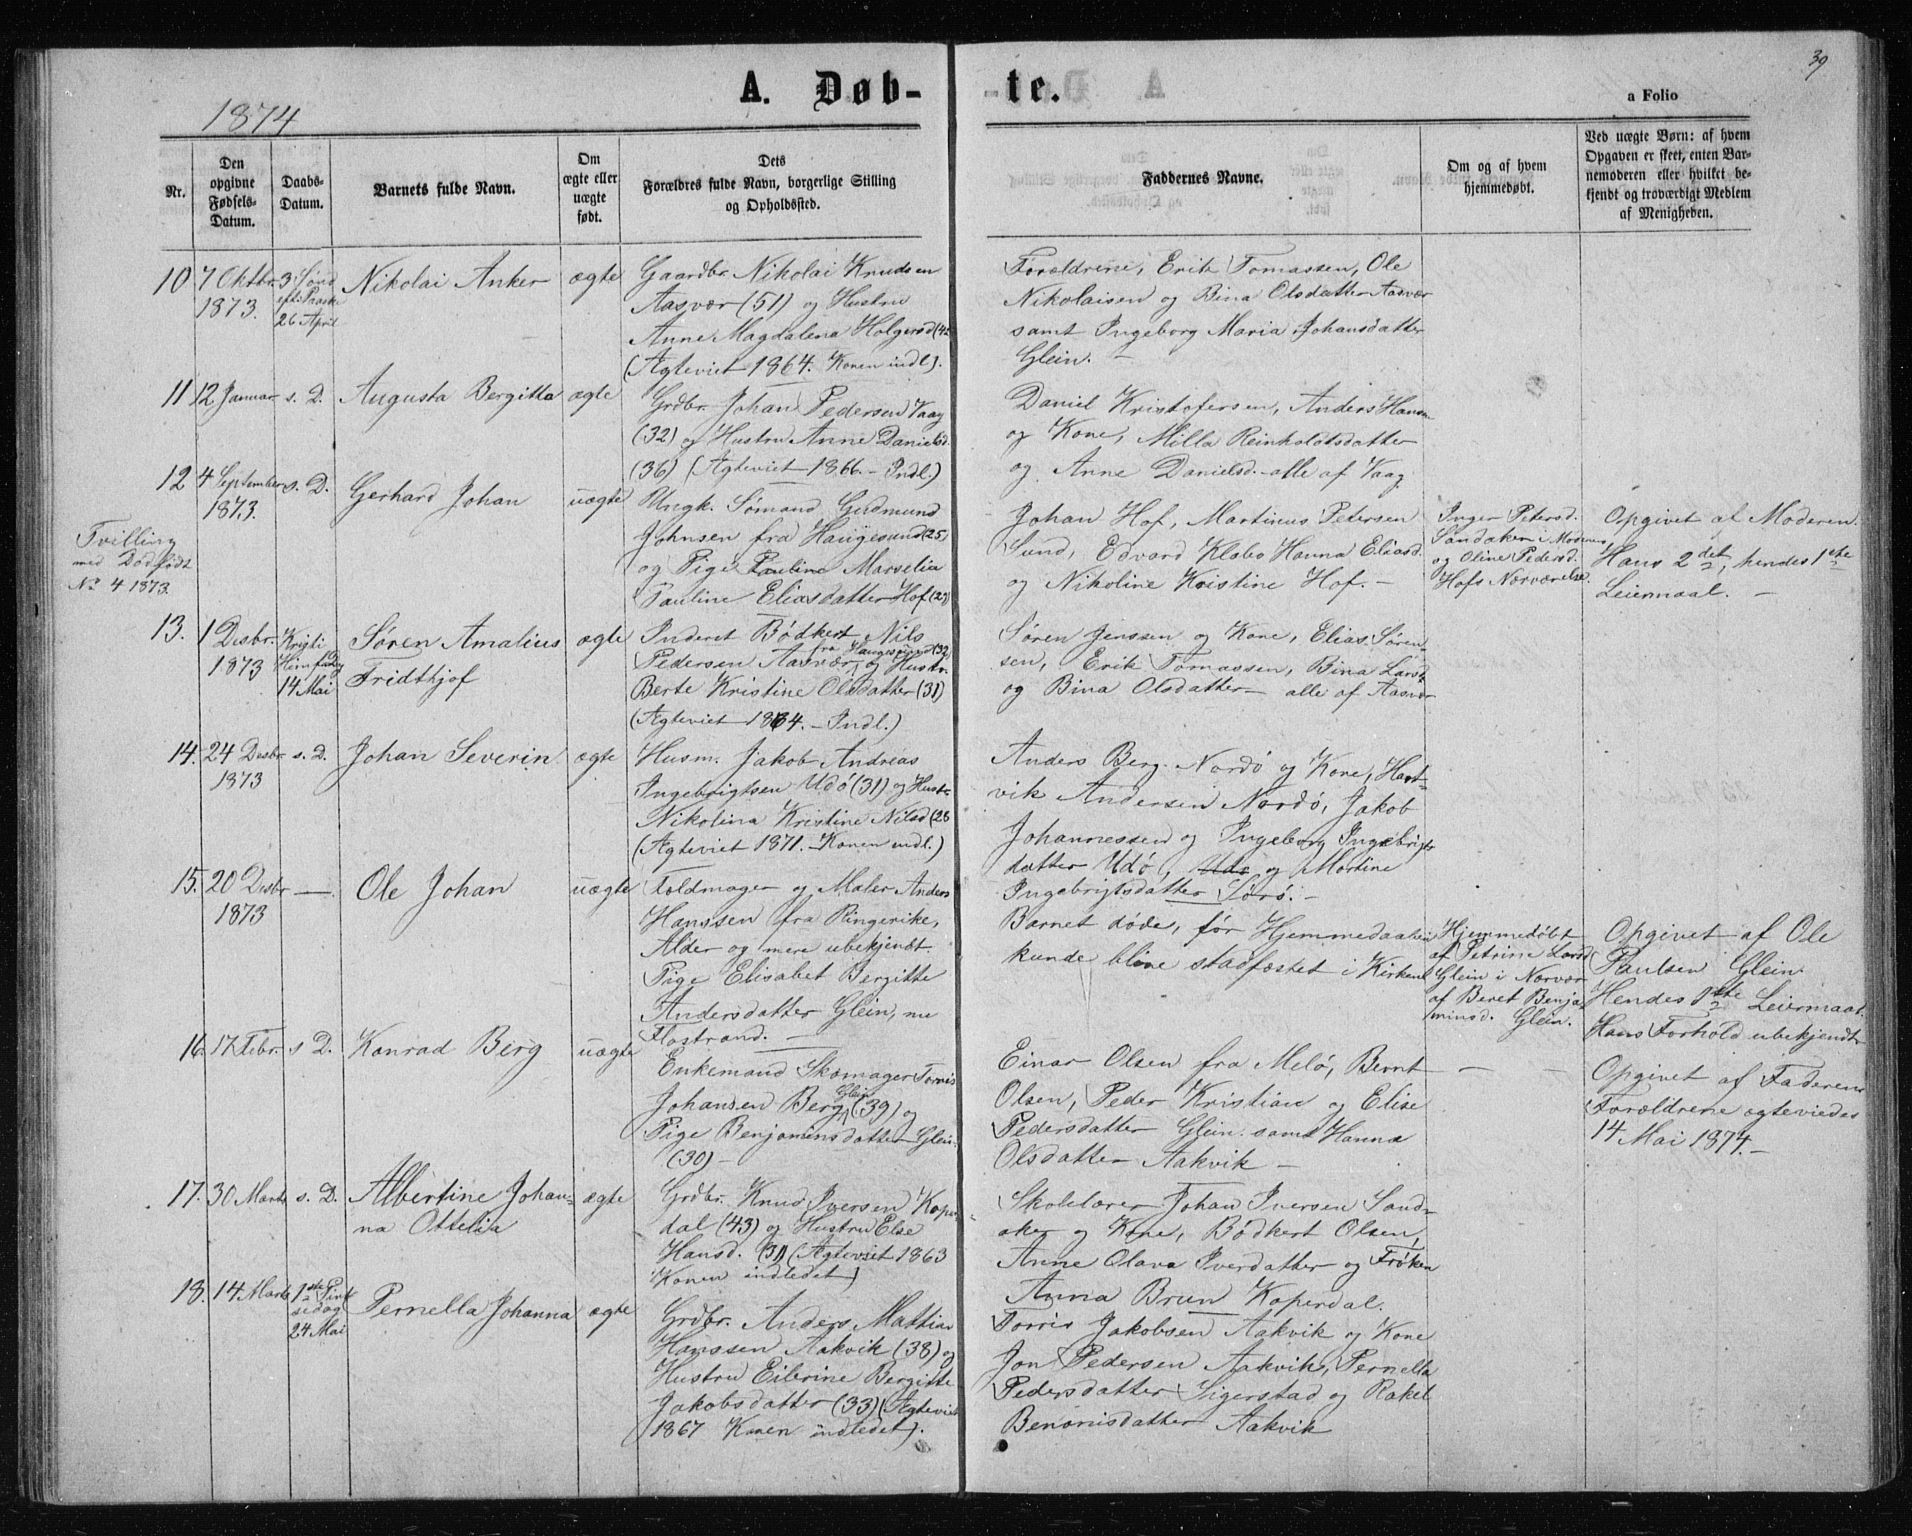 39
A. Døb-
te.
a Folio
1874
Nr.
Den
opgivne
Fødsels-
Datum.
Daabs-
Datum.
Barnets fulde Navn.
Om
ægte eller
uægte
født.
Dets
Forældres fulde Navn, borgerlige Stilling
og Opholdssted.
Faddernes Navne.
Om og af hvem
hjemmedøbt.
Ved uægte Børn: af hvem
Opgaven er skeet, enten Bar-
nemoderen eller hvilket be-
kjendt og troværdigt Medlem
af Menigheden.
10 7 Oktbr.
1873.
3 Sønd
eft. Paaske
26 April
Nikolai Anker
ægte
Gaardbr. Nikolai Knudsen
Aasvær (51) og Hustru
Anne Magdalena Holgersd (42
(Ægteviet 1864. Konen indl).
Forældrene, Erik Tomassen, Ole
Nikolaisen og Bina Olsdatter Aasvær
samt Ingeborg Maria Johansdatter
Glein. —
11 12 Januar
s. D.
Augusta Bergitta
ægte
Grdbr. Johan Pedersen Vaag
(32) og Hustru Anne Danielsd.
(36) (Ægteviet 1866. – Indl.)
Daniel Kristofersen, Anders Hansen
og Kone, Milla Reinholdtsdatter
og Anne Danielsd. alle af Vaag
12 4 September
1873.
s. D.
Tvilling
med Dødfødt
No 4 1873.
Gerhard Johan
uægte
Ungk. Sømand Gudmund
Johnsen fra Haugesund (25)
og Pige Pauline Marselia
Pauline Eliasdatter Hof (27)
Johan Hof, Martinus Petersen
Sund, Edvard Klabo Hanna Eliasd.
og Nikoline Kristine Hof. –
Inger Petersd.
Sandaker i Moderens
og Oline Pedersd.
Hofs Nærværelse.
Opgivet af Moderen.
Hans 2det, hendes 1ste
Leiermaal. —
13. 1 Desbr.
1873
Kristi
Himfartsdag
14 Mai
Søren Amalius
Fridthjof
ægte
Inderst Bødkert Nils
fra Haugesund (32)
Pedersen Aasvær, og Hustr.
Berte Kristine Olsdatter (31)
(Ægteviet 1864. – Indl.)
Søren Jenssen og Kone, Elias Søren-
sen, Erik Tomassen, Bina Larsd.
og Bina Olsdatter – alle af Aasvær
14. 24 Desbr
1873
s. D.
Johan Severin
ægte
Husm. Jakob Andreas
Ingebrigtsen Udø (31) og Hustr.
Nikolina Kristine Nilsd (26
(Ægteviet 1871. – Konen indl.)
Anders Berg Nordø og Kone, Hart-
vik Andersen Nordø, Jakob
Johannessen og Ingeborg Ingebrigts-
datter Udø, Udø og Martine
Ingebrigtsdatter Sørø. –
15. 20 Desbr
1873
—
Ole Johan
uægte
Foldmager og Maler Anders
Hanssen fra Ringerike,
Alder og mere ubekjendt.
Pige Elisabet Bergitte
Andersdatter Glein, nu
Flostrand. —
Barnet døde, før Hjemmedaaben
kunde blive stadfæstet i Kirken
Hjemmedøbt
af Petrine Larsd
Glein i Nærvær
af Beret Benja-
minsd. Glein.
Opgivet af Ole
Paulsen Glein.
Hendes 1ste Leiermaal.
Hans Forhold ubekjendt.
16. 17 Febr.
s D.
Konrad Berg
uægte
Enkemand Skomager Torris
Glein
Johansen Berg (39) og
Pige Benjaminsdatter Glein.
(30) –
Einar Olsen fra Melø, Bernt
Olsen, Peder Kristian og Elise
Pedersdatter Glein. samt Hanna
Olsdatter Aakvik –
—
Opgivet af Faderen
Forældrene ægteviedes
14 Mai 1874. –
17. 30 Marts
s. D.
Albertine Johan-
na Ottelia
ægte
Grdbr. Knud Iversen Koper-
dal (43) og Hustru Else
Hansd. (31) (Ægteviet 1863
Konen indledet)
Skolelærer Johan Iversen Sand-
aker og Kone, Bødkert Olsen,
Anne Olava Iverdatter og Frøken
Anna Brun Koperdal.
18. 14 Marts
1ste Pint-
sedag
24 Mai
Pernella Johanna
ægte
Grdbr. Anders Mattias
Hanssen Aakvik (38) og
Hustru Eilerine Bergitte
Jakobsdatter (33) (Ægteviet
1867 Konen indledet).
Torris Jakobsen Aakvik og Kone
Jon Pedersen Aakvik, Pernella
Pedersdatter Sigerstad og Rakel
Benonisdatter Aakvik